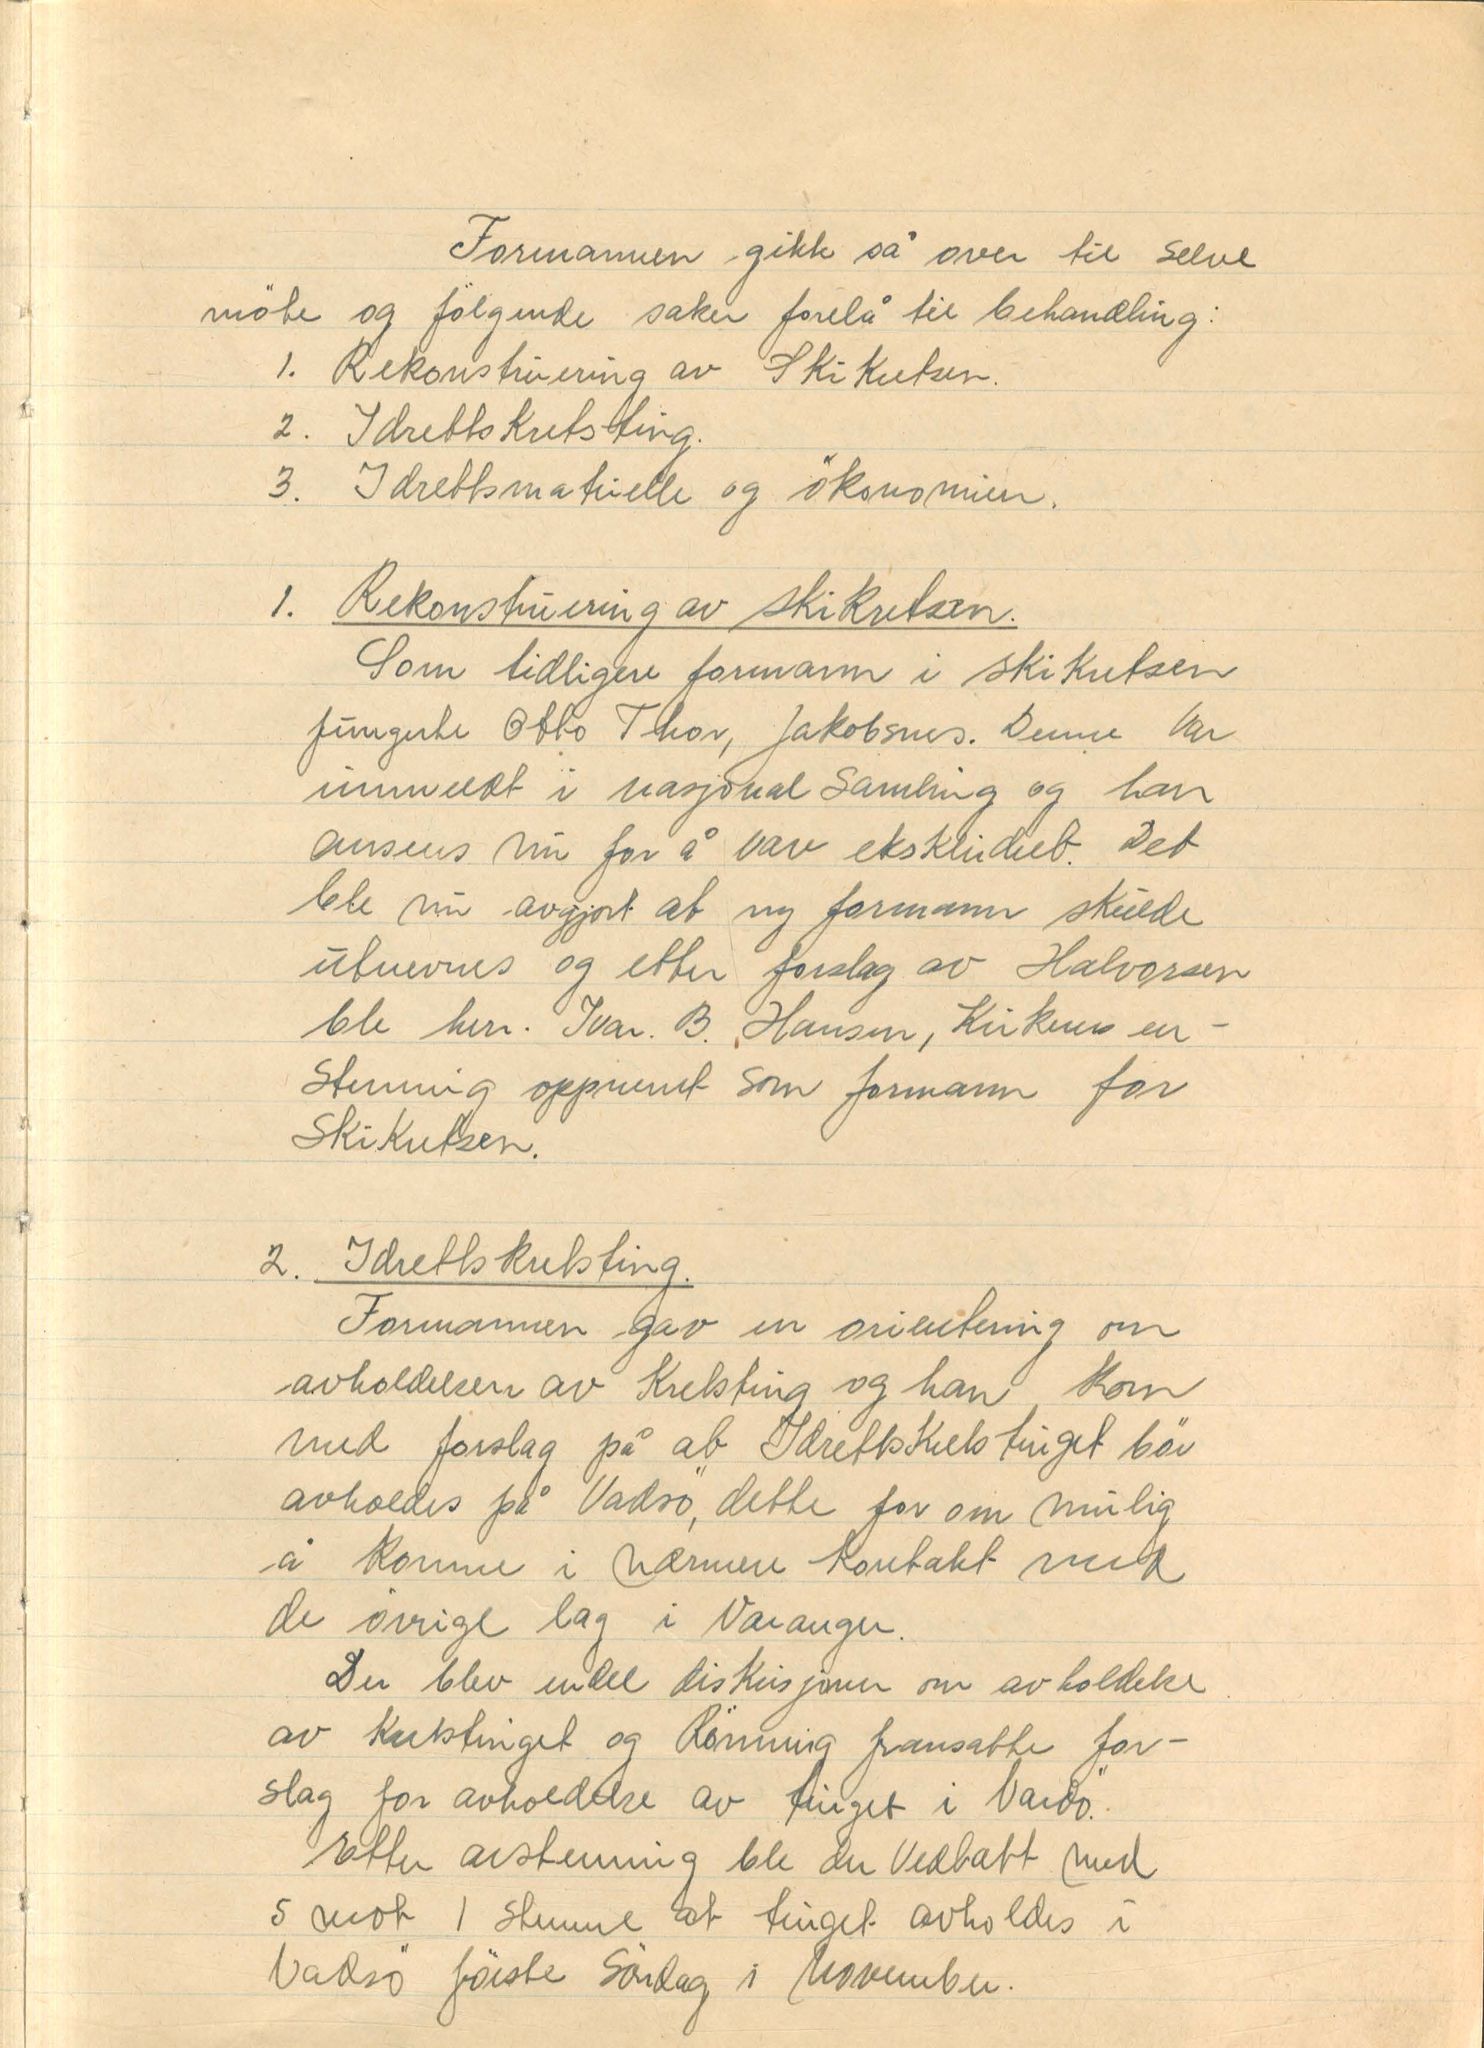 Formannen gikk så over til selve
möte og fölgende saker forelå til behandling:
1. Rekonstruering av Skikretsen.
2. Idrettskretsting.
3. Idrettsmateriell og ökonomien.
1. Rekonstruering av skikretsen.
Som tidligere formann i skikretsen
fungerte Otto Thor, Jakobsnes. Denne var
innmeldt i nasjonal Samling og han
ansees nu for å være ekskludert. Det
ble nu avgjort at ny formann skulde
utnevnes og etter forslag av Halvorsen
ble herr. Ivar. B. Hansen, Kirkenes en-
stemmig oppnevnt som formann for
Skikretsen.
2. Idrettskretsting.
Formannen gav en orientering om
avholdelsen av Kretsting og han kom
med forslag på at Idrettskretstinget bör
avholdes på Vadsö, dette for om mulig
å komme i nærmere kontakt med
de övrige lag i Varanger.
Der blev endel diskusjoner om avholdelse
av Kretstinget og Rönning framsatte for-
slag for avholdelse av tinget i Vardö.
Etter avstemning ble der vedtatt med
5 mot 1 stemme at tinget avholdes i
Vadsö förste Söndag i November.